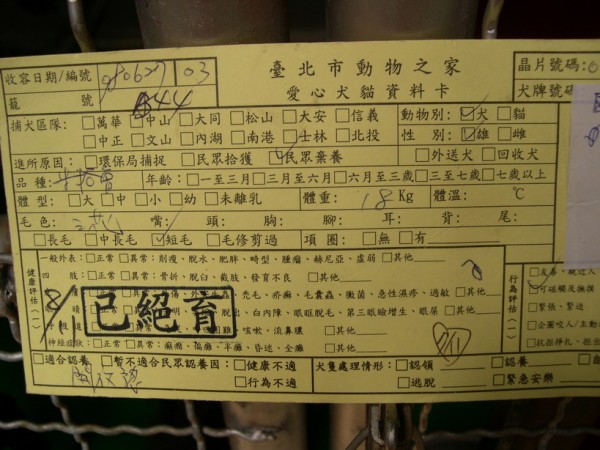 收容日期/編號 980627 03 臺北市動物之家 晶片號碼:0
籠 號 44 愛心犬貓資料卡 犬牌號碼
捕犬區隊: □萬華 □中山 □大同 □松山 □大安 □信義 動物別: ☑犬 □貓
□中正 □文山 □內湖 □南港 □士林 □北投 性 別: ☑雄 □雌
進所原因: □環保局捕捉 □民眾拾獲 ☑民眾棄養 □外送犬 □回收犬
品種: 年齡: □一至三月 □三月至六月 □六月至三歲 □三至七歲 □七歲以上
體型: □大 □中 □小 □幼 □未離乳 體重: 18 Kg 體溫: ℃
毛色: 嘴: 頭: 胸: 腳: 耳: 背: 尾:
□長毛 □中長毛 ☑短毛 □毛修剪過 項圈: □無 □有
健康評估(一)
一般外表: □正常 □異常: 削瘦、脫水、肥胖、畸型、腫瘤、赫尼亞、虛弱 □其他
四 肢: □正常 □異常: 骨折、脫臼、截肢、發育不良 □其他
禿毛、疥癬、毛囊蟲、黴菌、急性濕疹、過敏 □其他
白內障、眼眶脫毛、第三眼瞼增生、眼屎 □其他
咳嗽、流鼻環 □其他
神經症狀: □正常 □異常: 癲癇、偏癱、半癱、昏迷、全癱 □其他
8/
已絕育
7/11
行為評估(一)
可碰觸及撫摸
緊張、緊迫
□適合認養 □暫不適合民眾認養因: □健康不適 犬隻處理情形: □認領 □認養
□行為不適 □逃脫 □緊急安樂